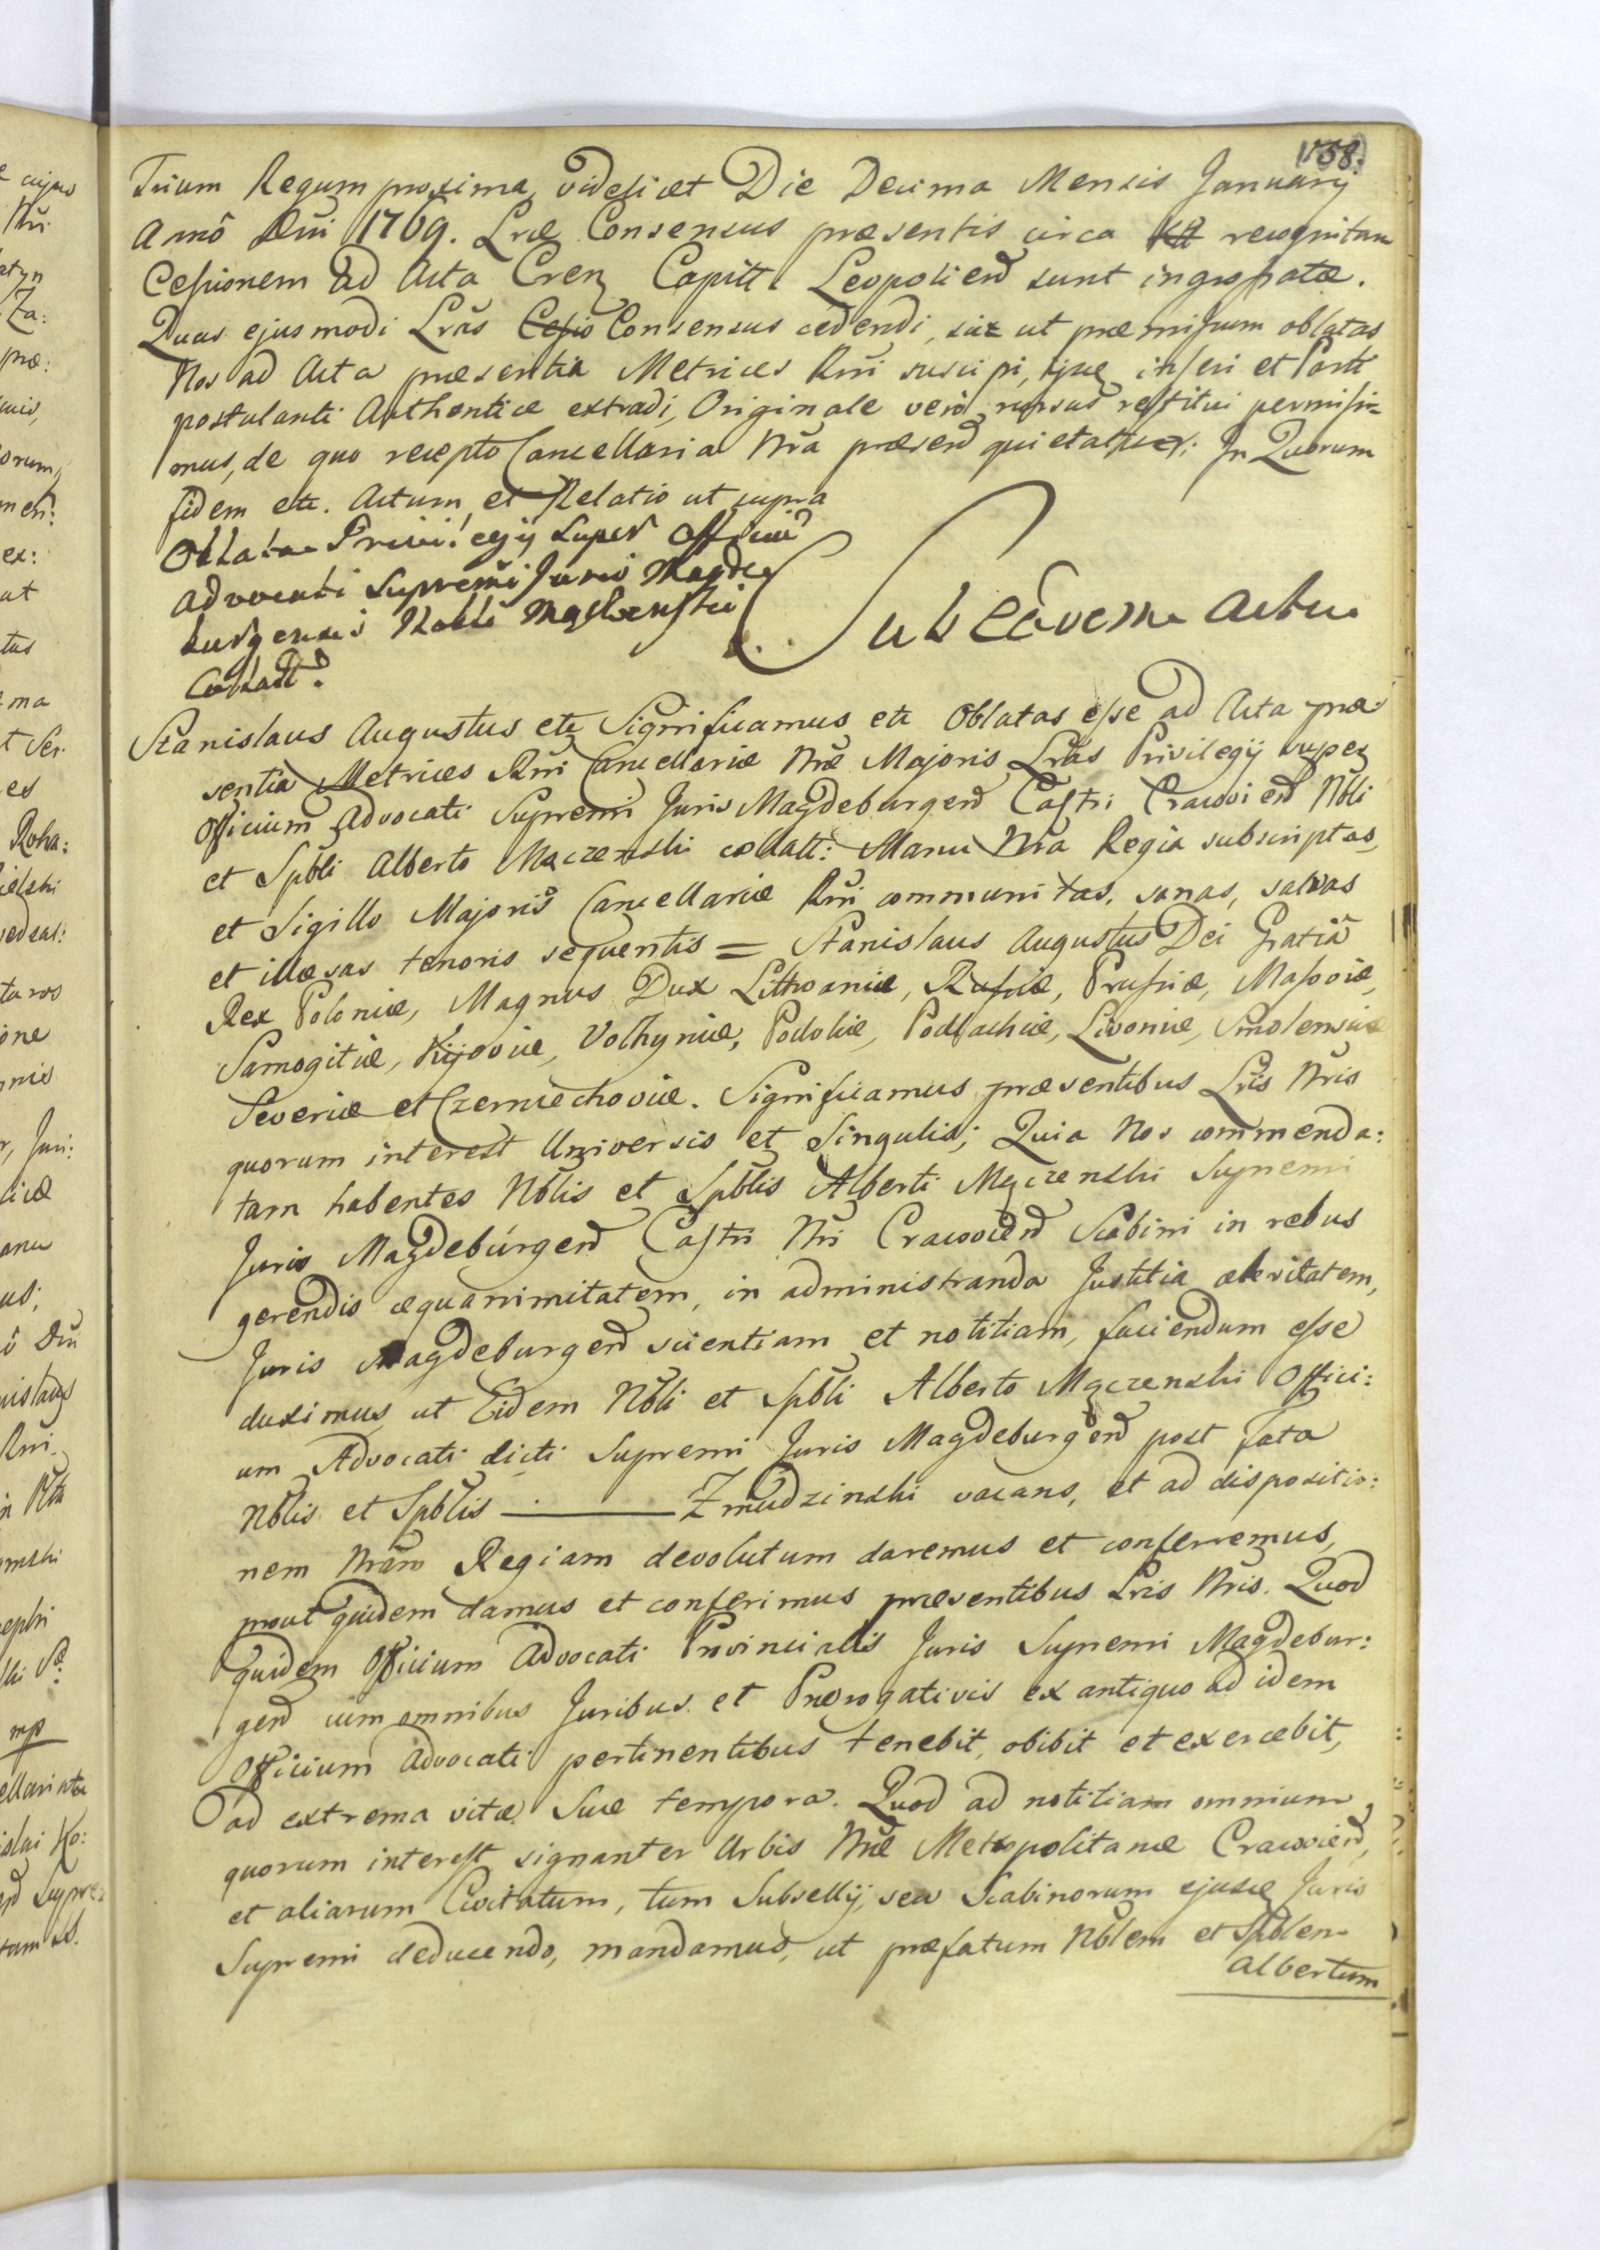 158.
Trium Regum proxima, videlicet Die Decima Mensis January
Anno Dni 1769. Lræ Consensus præsentis circa recognitam
Cessionem ad Acta Cren Capitt Leopoliens sunt ingrossatæ.
Quas ejusmodi Lras Cessio Consensus cedendi, sic ut præmissum oblatas
Nos ad Acta præsentia Metrices Rni suscipi, ijsq inseri et Parti
postulanti Authentice extradi, Originale vero rursus restitui permisi=
mus, de quo recepto Cancellaria Nra præsens quietatur. In Quorum
fidem etc. Actum et Relatio ut supra
Oblata Privilegij super Officiū
Advocati Supremi Juris Magde
burgensis Nobli Mączenski
Collatt.
Sub eodem Actu
Stanislaus Augustus etc Significamus etc Oblatas esse ad Acta præ:
sentia Metrices Rni Cancellariæ Nræ Majoris Lras Privilegij super
Officium Advocati Supremi Juris Magdeburgens Castri Cracoviens Nbli
et Spbli Alberto Mączenski collatt: Manu Nra Regia subscriptas,
et Sigillo Majoris Cancellariæ Rni communitas, sanas, salvas
et illæsas tenoris sequentis = Stanislaus Augustus Dei Gratiâ
Rex Poloniæ, Magnus Dux Lithvaniæ, Russiæ, Prussiæ, Masoviæ,
Samogitiæ, Kijoviæ, Volhyniæ, Podoliæ, Podlachiæ, Livoniæ, Smolensciæ
Severiæ et Czerniechoviæ. Significamus præsentibus Lris Nris
quorum interest Universis et Singulis; Quia Nos commenda:
tam habentes Nblis et Spblis Alberti Mączenski Supremi
Juris Magdeburgens Castri Nri Cracoviens Scabini in rebus
gerendis æquanimitatem, in administranda Justitia celeritatem,
Juris Magdeburgens scientiam et notitiam, faciendum esse
duximus, ut Eidem Nbli et Spbli Alberto Mączenski Offici:
um Advocati dicti Supremi Juris Magdeburgens post fata
Nblis et Spblis ——— Zmudzinski vacans, et ad dispositio:
nem Nram Regiam devolutum daremus et conferremus,
prout quidem damus et conferimus præsentibus Lris Nris. Quod
quidem Officium Advocati Provincialis Juris Supremi Magdebur:
gens cum omnibus Juribus et Prærogativis ex antiquo ad idem
Officium Advocati pertinentibus tenebit, obibit et exercebit,
ad extrema vitæ suæ tempora. Quod ad notitiam omnium
quorum interest signanter Urbis Nræ Metropolitanæ Cracoviens,
et aliarum Civitatum, tum Subsellij, seu Scabinorum ejusd Juris
Supremi deducendo, mandamus, ut præfatum Nblem et Spblem
Albertum